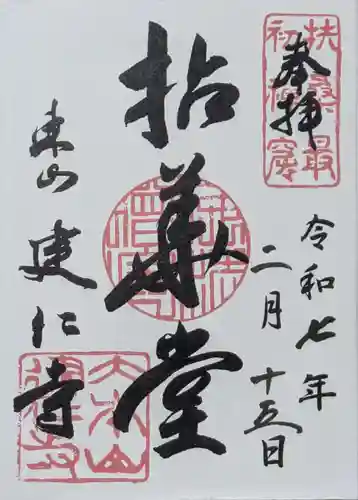 奉拝
扶桑最
初禅窟
令和七年
二月十五日
拈華堂
東山
建仁寺